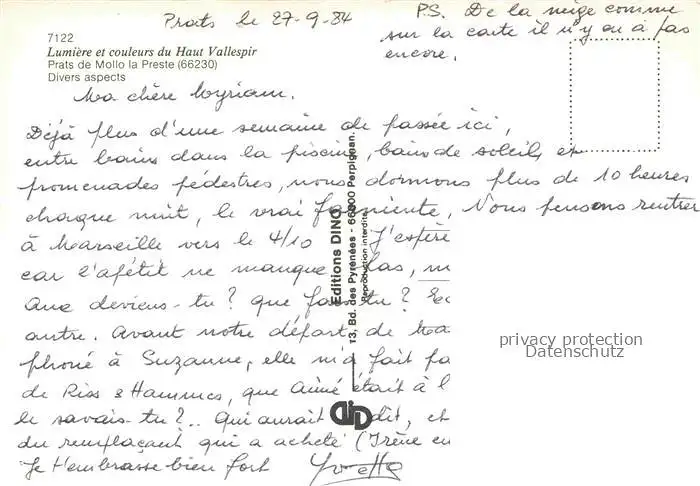 Prats le 27-9-84
P.S. De la neige comme
sur la carte il n'y on a pas
encore.
7122
Lumière et couleurs du Haut Vallespir
Prats de Mollo la Preste (66230)
Divers aspects
Ma chère Myriam.
Déjà plus d'une semaine de passée ici,
entre bains dans la piscine, bains de soleil, et
promenades pédestres, nous dormons plus de 10 heures
chaque nuit, le vrai farniente, Nous pensons rentrer
à Marseille vers le 4/10 J'espère
car l'apétit ne manque pas,
Que deviens-tu? que fais-tu?
autre. Avant notre départ de
phoné à Suzanne, elle m'a fait
de Riss & Hammes, que Aimé était à l
le savais-tu?.. Qui aurait dit, et
du remplaçant qui a acheté (Irène en
Je t'embrasse bien fort Yvette
Editions DINO
13, Bd. des Pyrénées - 66000 Perpignan.
Reproduction interdite.
privacy protection
Datenschutz